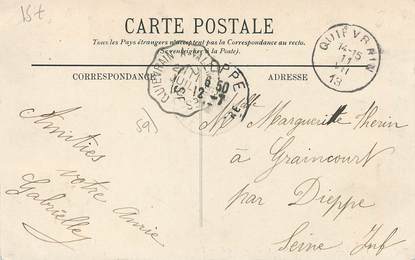 15t
CARTE POSTALE
Tous les Pays étrangers n'acceptent pas la Correspondance au recto.
(Se renseigner à la Poste)
CORRESPONDANCE
ADRESSE
QUIÉVRAIN
14-15
11
VII
13
DIEPPE
6 50
12-7
59
Amitiés
votre amie
Gabrielle
Mlle Marguerite Therin
à Graincourt
par Dieppe
Seine Inf